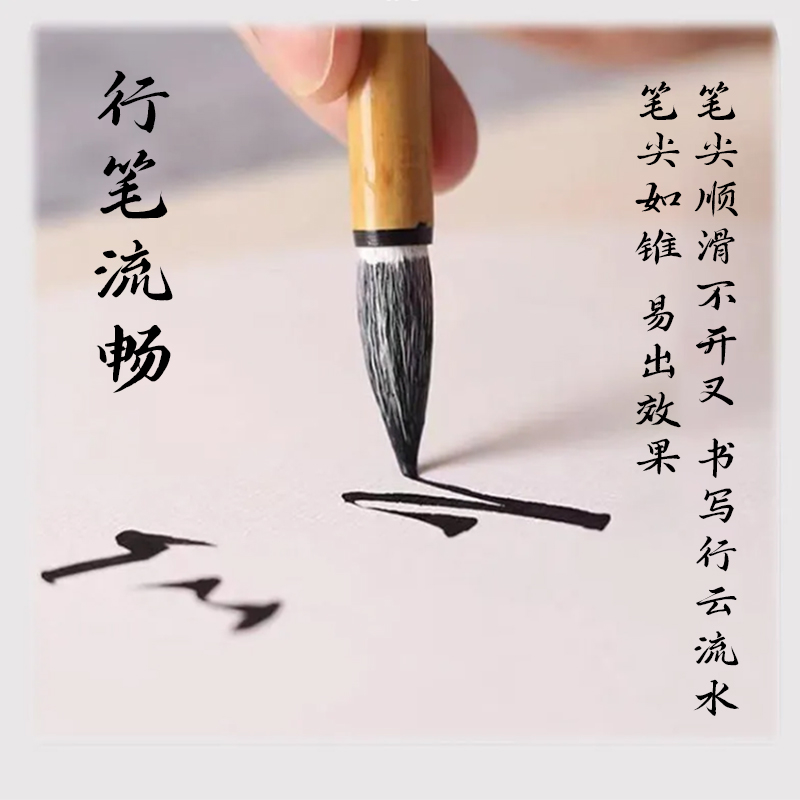 行笔流畅
笔尖顺滑不开叉 书写行云流水
笔尖如锥 易出效果